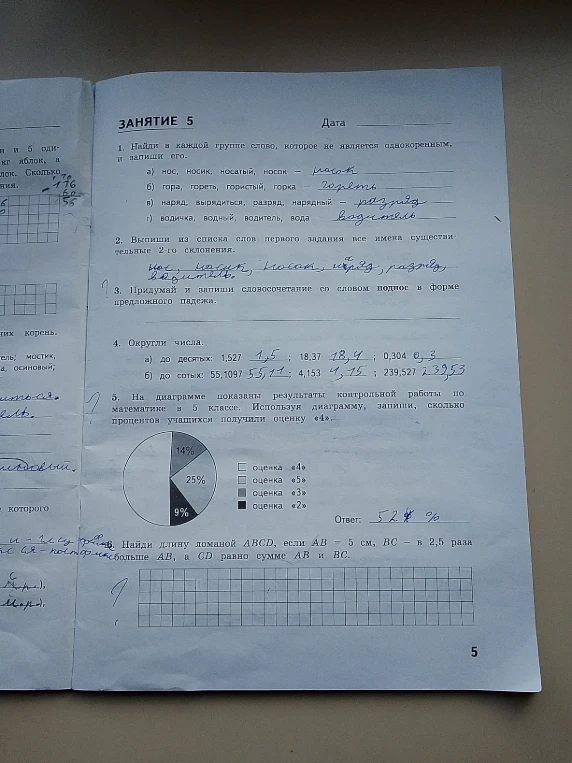 и и 5 оди-
кг яблок, а
лок. Сколько
ния.
них корень.
тель; мостик,
а, осиновый;
е которого
ЗАНЯТИЕ 5
Дата
1. Найди в каждой группе слово, которое не является однокоренным,
и запиши его.
а) нос, носик, носатый, носок – носок
б) гора, гореть, гористый, горка – гореть
в) наряд, вырядиться, разряд, нарядный – разряд
г) водичка, водный, водитель, вода – водитель
2. Выпиши из списка слов первого задания все имена существи-
тельные 2-го склонения.
нос, носик, носок, наряд, разряд,
водитель.
3. Придумай и запиши словосочетание со словом поднос в форме
предложного падежа.
4. Округли числа:
а) до десятых: 1,527 1,5 ; 18,37 18,4 ; 0,304 0,3
б) до сотых: 55,1097 55,11 ; 4,153 4,15 ; 239,527 239,53
5. На диаграмме показаны результаты контрольной работы по
математике в 5 классе. Используя диаграмму, запиши, сколько
процентов учащихся получили оценку «4».
14%
25%
9%
оценка «4»
оценка «5»
оценка «3»
оценка «2»
Ответ: 52 %
6. Найди длину ломаной ABCD, если AB = 5 см, BC – в 2,5 раза
больше AB, а CD равно сумме AB и BC.
5